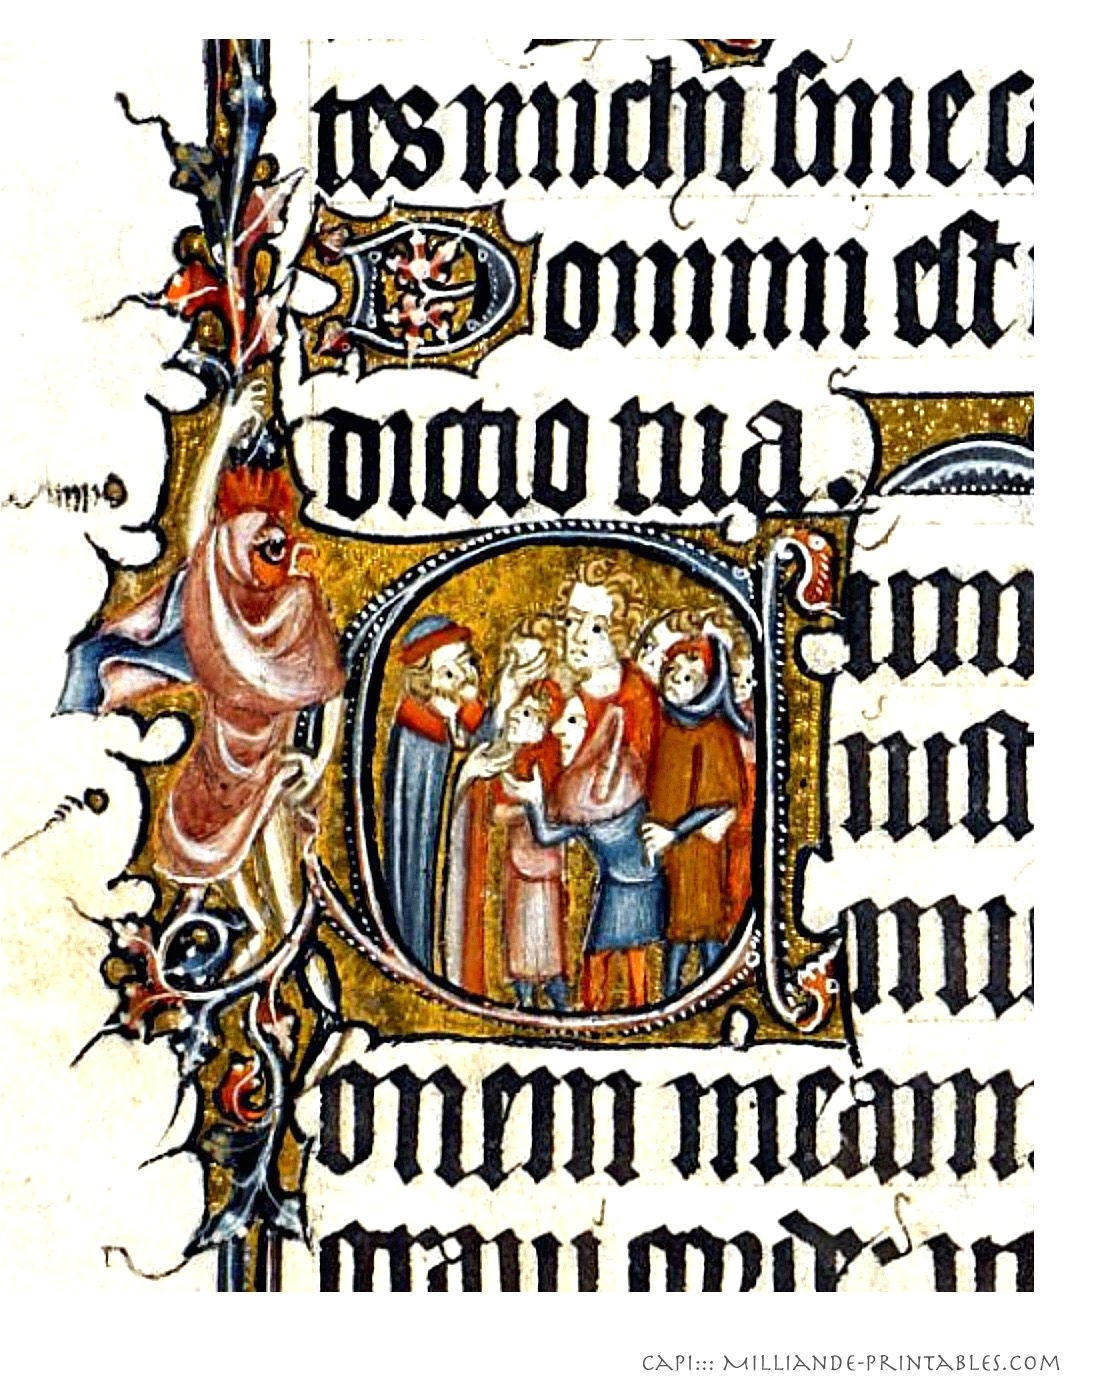 tes michi sine ca
Domini est
dictio tua.
Cum
iust
mis
onem meam.
graui corde· u
CAPI::: MILLIANDE-PRINTABLES.COM